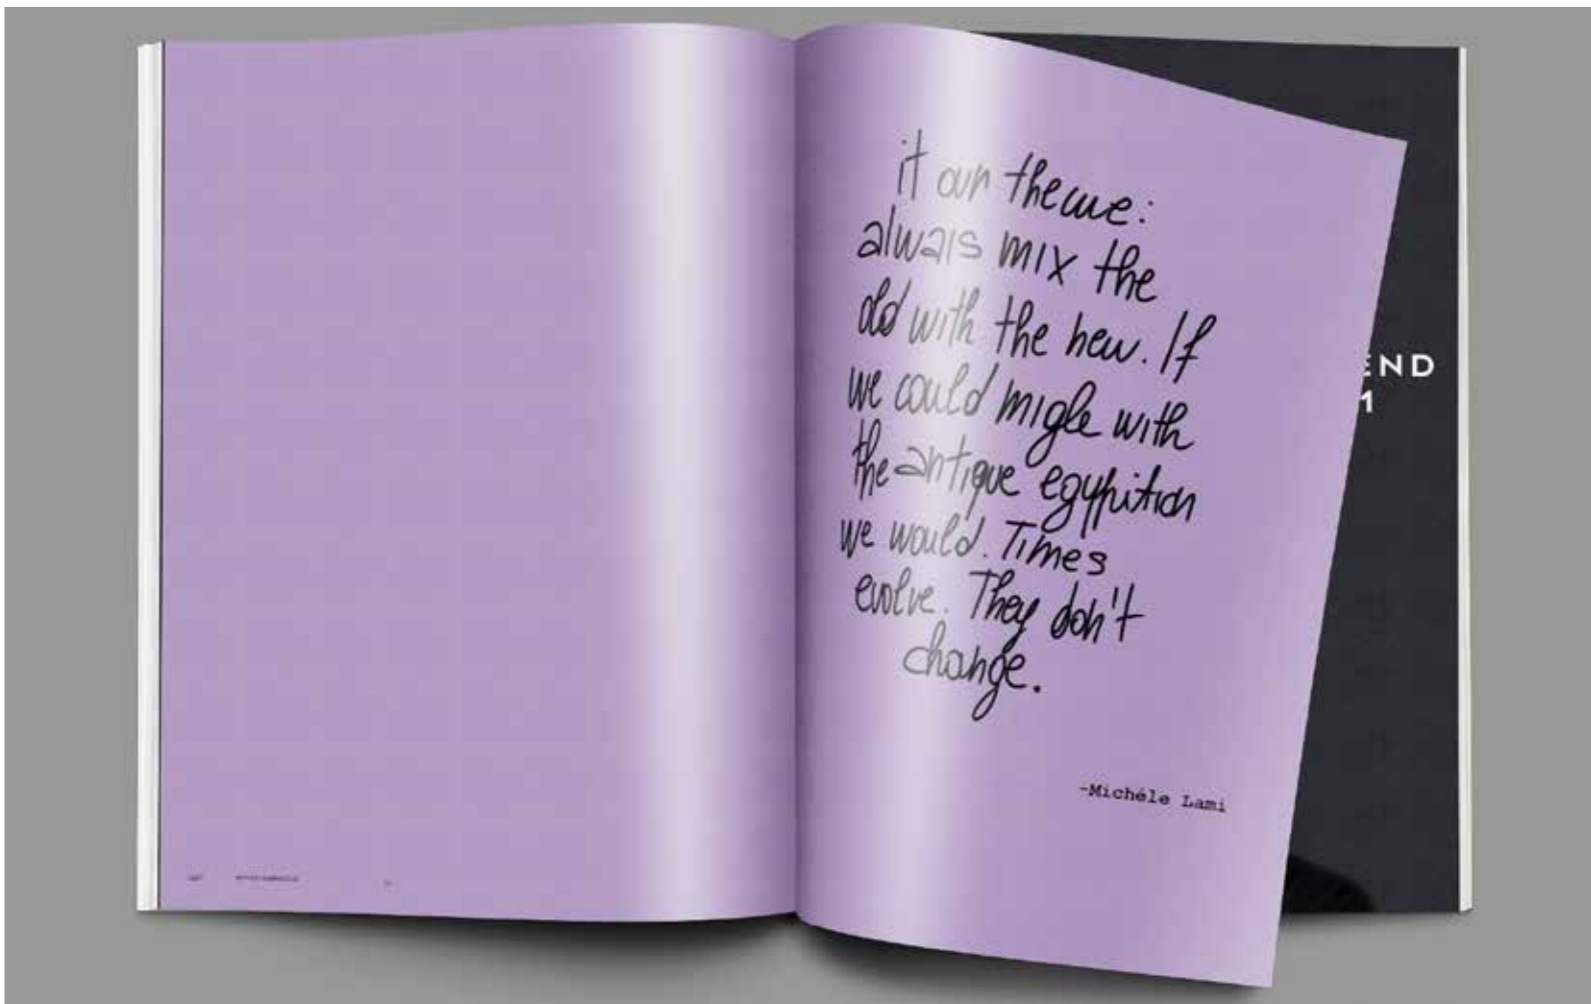 it our theme:
alwais mix the
old with the new. If
we could migle with
the antique egypitian
we would. Times
evolve. They don't
change.
-Michéle Lami
END
1